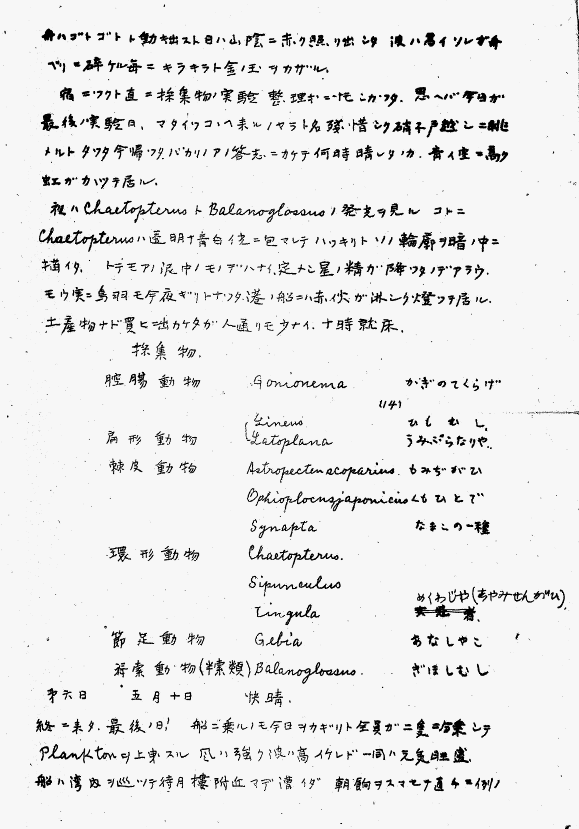 舟ハゴトゴトト動キ出スト日ハ山陰ニ赤ク照リ出シタ 波ハ高イソレガ舟
ベリニ砕ケル毎ニキラキラト金ノ玉ヲカザル.
宿ニツクト直ニ採集物ノ実験 整理ニ忙シカツタ. 思ヘバ今日が
最後ノ実験日. マタイツコヽヘ来ルノヤラト名残惜シク硝子戸越シニ眺
メルト夕立今帰ツタバカリノアノ答志ニカケテ何時晴レタノカ. 青イ空ニ高ク
虹ガカヽツテ居ル.
夜ハ Chaetopterus ト Balanoglossus ノ発光ヲ見ル コトニ
Chaetopterus ハ透明ナ青白イ光ニ包マレテハツキリトソノ輪廓ヲ暗ノ中ニ
描イタ. トテモアノ泥中ノモノデハナイ. 定メシ星ノ精ガ降ツタノデアラウ.
モウ実ニ鳥羽モ今夜ギリトナツタ. 港ノ船ニハ赤イ火ガ淋シク燈ツテ居ル.
土産物ナド買ヒニ出カケタガ人通リモウナイ. 十時就床.
採集物.
腔腸動物 Gonionema かぎのてくらげ
(14)
Lineus ひもむし
扁形動物 Latoplana うみぶらなりや.
棘皮動物 Astropecten scoparius. もみぢがひ
Ophioplocus japonicus くもひとで
Synapta なまこの一種
環形動物 Chaetopterus.
Sipunculus
Lingula めくわじや(しやみせんがひ)
節足動物 Gebia あなしやこ
脊索動物(半索類) Balanoglossus. ぎぼしむし
第六日 五月十日 快晴.
終ニ来タ. 最後ノ日! 船ニ乗ルノモ今日ヲカギリト全員ガ二隻ニ分乗シテ
Plankton ノ上東スル 風ハ強ク波ハ高イケレド一同ハ元気旺盛.
船ハ湾内ヲ巡ツテ待月樓附近マデ漕イダ 朝餉ヲスマセテ直チニ例ノ